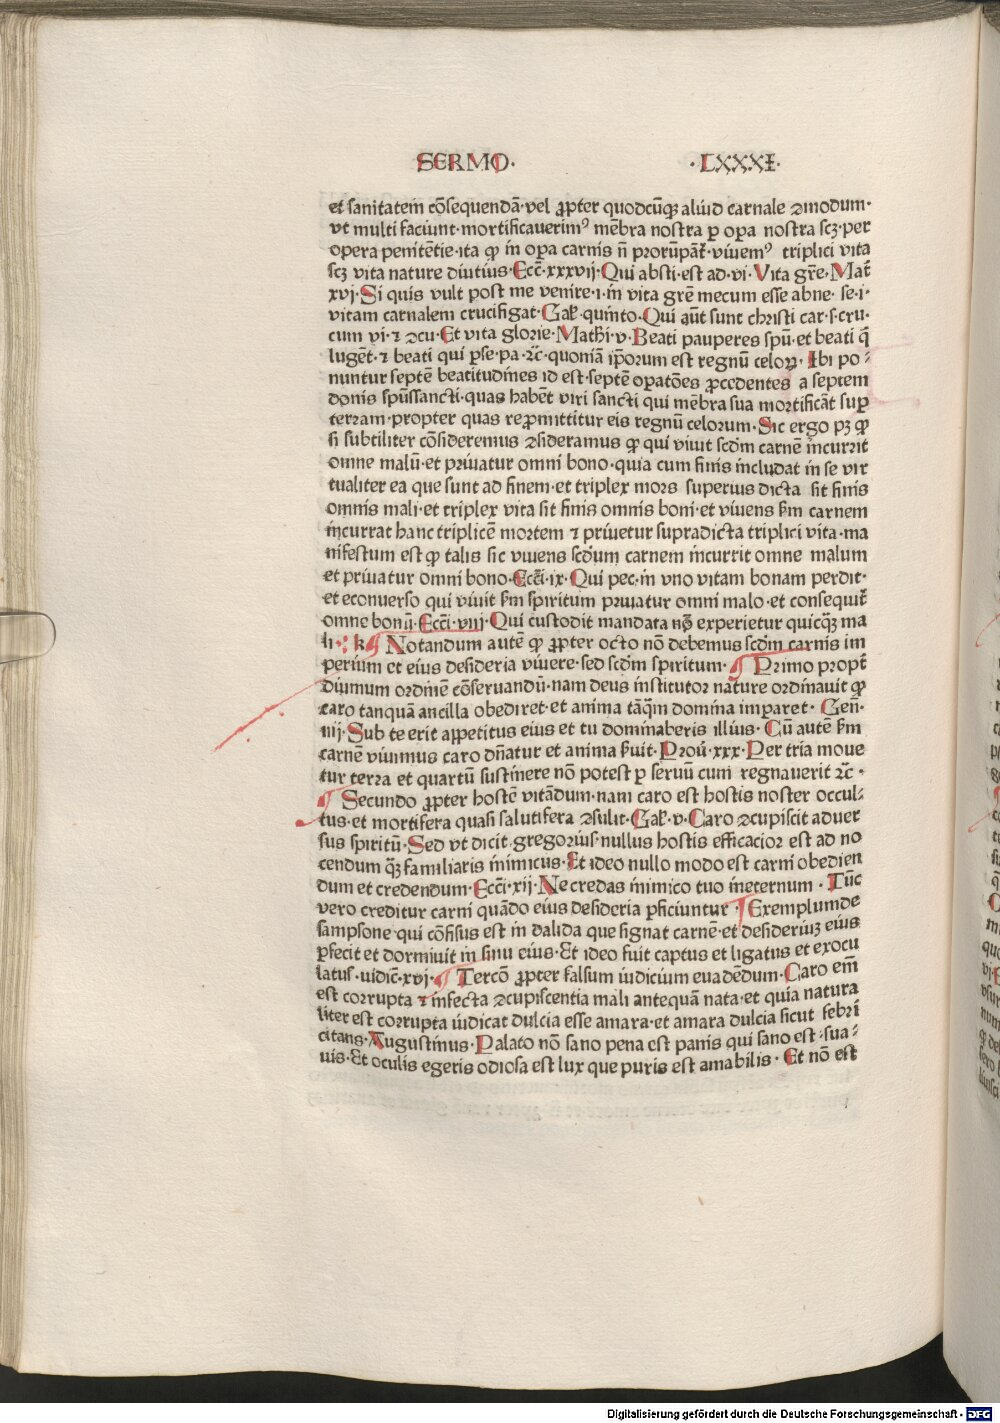 SERMO· ·LXXXI·
et sanitatem cõsequendã·vel ꝓpter quodcũqꝫ aliud carnale ꝯmodum·
vt multi faciunt·mortificauerimꝰ mẽbra nostra ꝑ oꝑa nostra scꝫ·per
opera penitẽtie·ita ꝙ in oꝑa carnis ñ prorũpãt᷑·viuemꝰ triplici vita
scꝫ vita nature diutius·Ecc̃·xxxvij·Qui absti·est ad·vi·Vita gr̃e·Mat̃
xvj·Si quis vult post me venire·i·in vita gr̃e mecum esse abne· se·i·
vitam carnalem crucifigat·Gal̃·quinto·Qui aũt sunt christi car·s·cru·
cum vi·⁊ ꝯcu·Et vita glorie·Mathi·v·Beati pauperes spũ·et beati q̃
lugẽt·⁊ beati qui ꝑse·pa·⁊c̃·quoniã ip̃orum est regnũ celoꝝ·Ibi po⸗
nuntur septẽ beatitudines id est·septẽ oꝑatões ꝓcedentes a septem
donis spũssancti·quas habẽt viri sancti qui mẽbra sua mortificãt suꝑ
terram·propter quas reꝓmittitur eis regnũ celorum·Sic ergo pꝫ ꝙ
si subtiliter cõsideremus ꝯsideramus ꝙ qui viuit scd̃m carnẽ incurrit
omne malũ·et priuatur omni bono·quia cum finis includat in se vir
tualiter ea que sunt ad finem·et triplex mors superius dicta sit finis
omnis mali·et triplex vita sit finis omnis boni·et viuens s̃m carnem
incurrat hanc triplicẽ mortem ⁊ priuetur supradicta triplici vita·ma
nifestum est ꝙ talis sic viuens scd̃um carnem incurrit omne malum
et priuatur omni bono·Ecc̃i·ix·Qui pec·in vno vitam bonam perdit·
et econuerso qui viuit s̃m spiritum priuatur omni malo·et consequit᷑
omne bonũ·Ecc̃i·viij·Qui custodit mandata nõ experietur quicq̃ꝫ ma
li· k ¶ Notandum autẽ ꝙ ꝓpter octo nõ debemus scd̃m carnis im
perium et eius desideria viuere·sed scd̃m spiritum· ¶ Primo propt̃
diuinum ordinẽ cõseruandũ·nam deus institutor nature ordinauit ꝙ
caro tanquã ancilla obediret·et anima tãq̃m domina imꝑaret· Geñ·
iiij·Sub te erit appetitus eius et tu dominaberis illius· Cũ autẽ s̃m
carnẽ viuimus caro dñatur et anima s̃uit·Prou̇·xxx·Per tria moue
tur terra et quartũ sustinere nõ potest ꝑ seruũ cum regnauerit ⁊c̃·
¶ Secundo ꝓpter hostẽ vitãdum·nam caro est hostis noster occul⸗
tus·et mortifera quasi salutifera ꝯsulit·Gal̃·v·Caro ꝯcupiscit aduer
sus spiritũ·Sed vt dicit gregorius·nullus hostis efficacior est ad no
cendum q̃ꝫ familiaris inimicus·Et ideo nullo modo est carni obedien
dum et credendum·Ecc̃i·xij·Ne credas inimico tuo ineternum·Tũc
vero creditur carni quãdo eius desideria ꝑficiuntur·¶Exemplum de
sampsone·qui cõfisus est in dalida que signat carnẽ·et desideriũꝫ eius
ꝑfecit et dormiuit in sinu eius·Et ideo fuit captus et ligatus et exocu
latus·iudic̃·xvj·¶ Tercõ ꝓpter falsum iudicium euadẽdum·Caro em̃
est corrupta ⁊ infecta ꝯcupiscentia mali antequã nata·et quia natura
liter est corrupta iudicat dulcia esse amara·et amara dulcia sicut febri
citans·Augustinus·Palato nõ sano pena est panis qui sano est·sua⸗
uis·Et oculis egeris odiosa est lux que puris est amabilis·Et nõ est
Digitalisierung gefördert durch die Deutsche Forschungsgemeinschaft - DFG